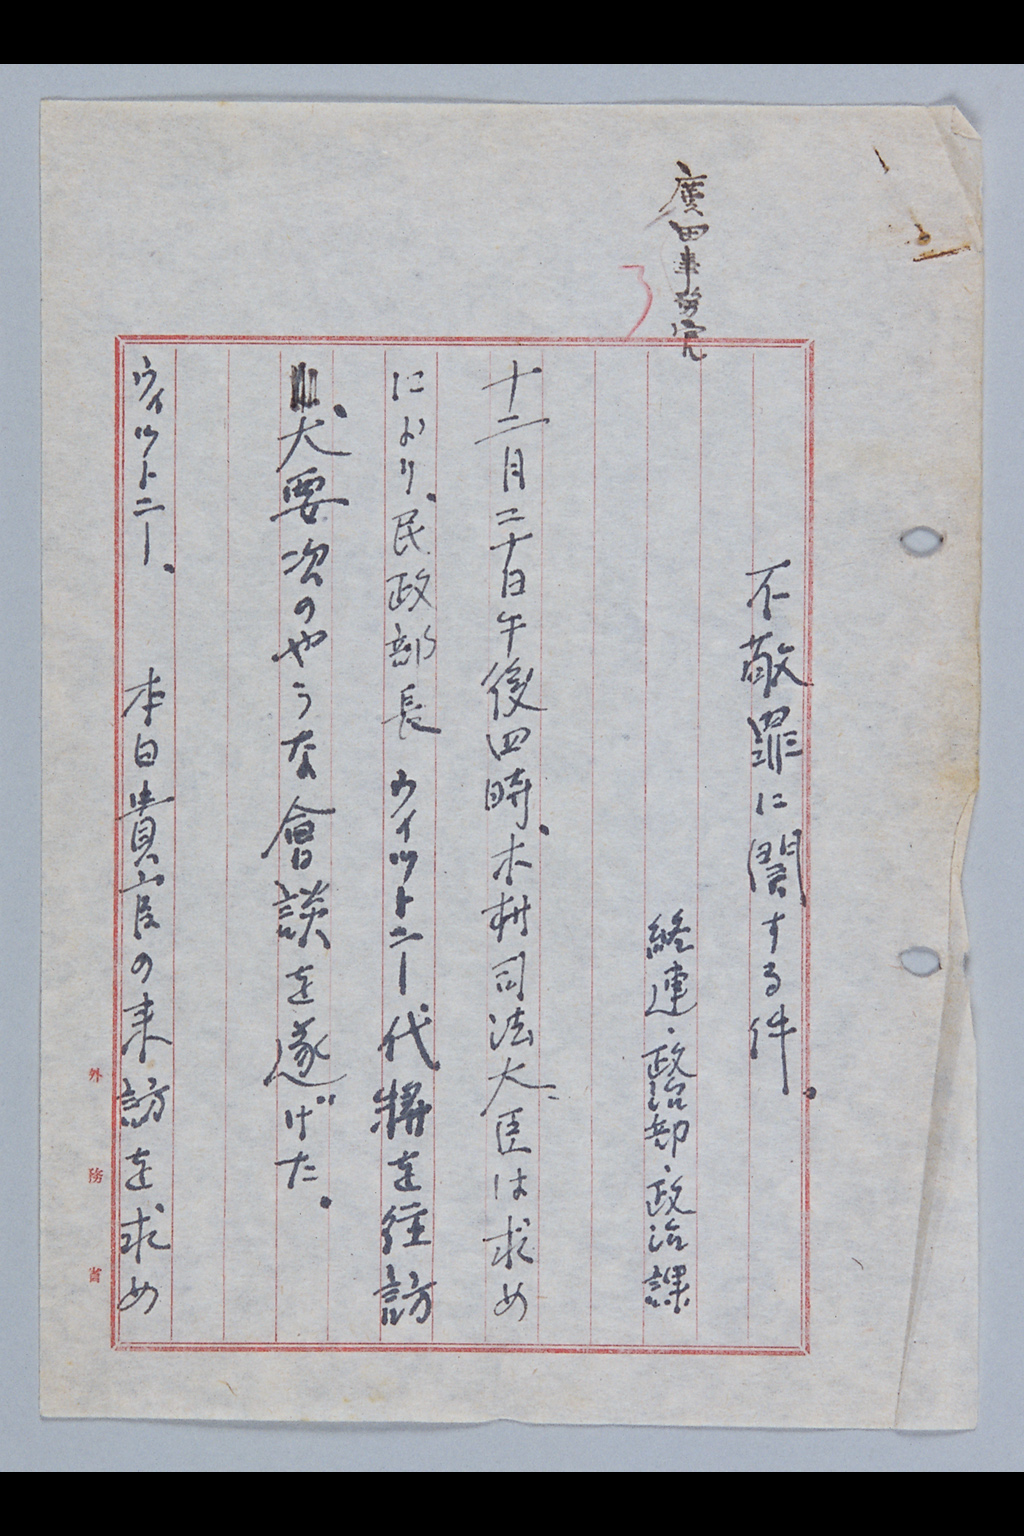 廣田事務官
不敬罪に関する件。
終連、政治部、政治課
十二月二十日午後四時、木村司法大臣は求め
により、民政部長ウィットニー代将を往訪
大要次のやうな會談を遂げた。
ウィットニー。 本日貴官の来訪を求め
外務省